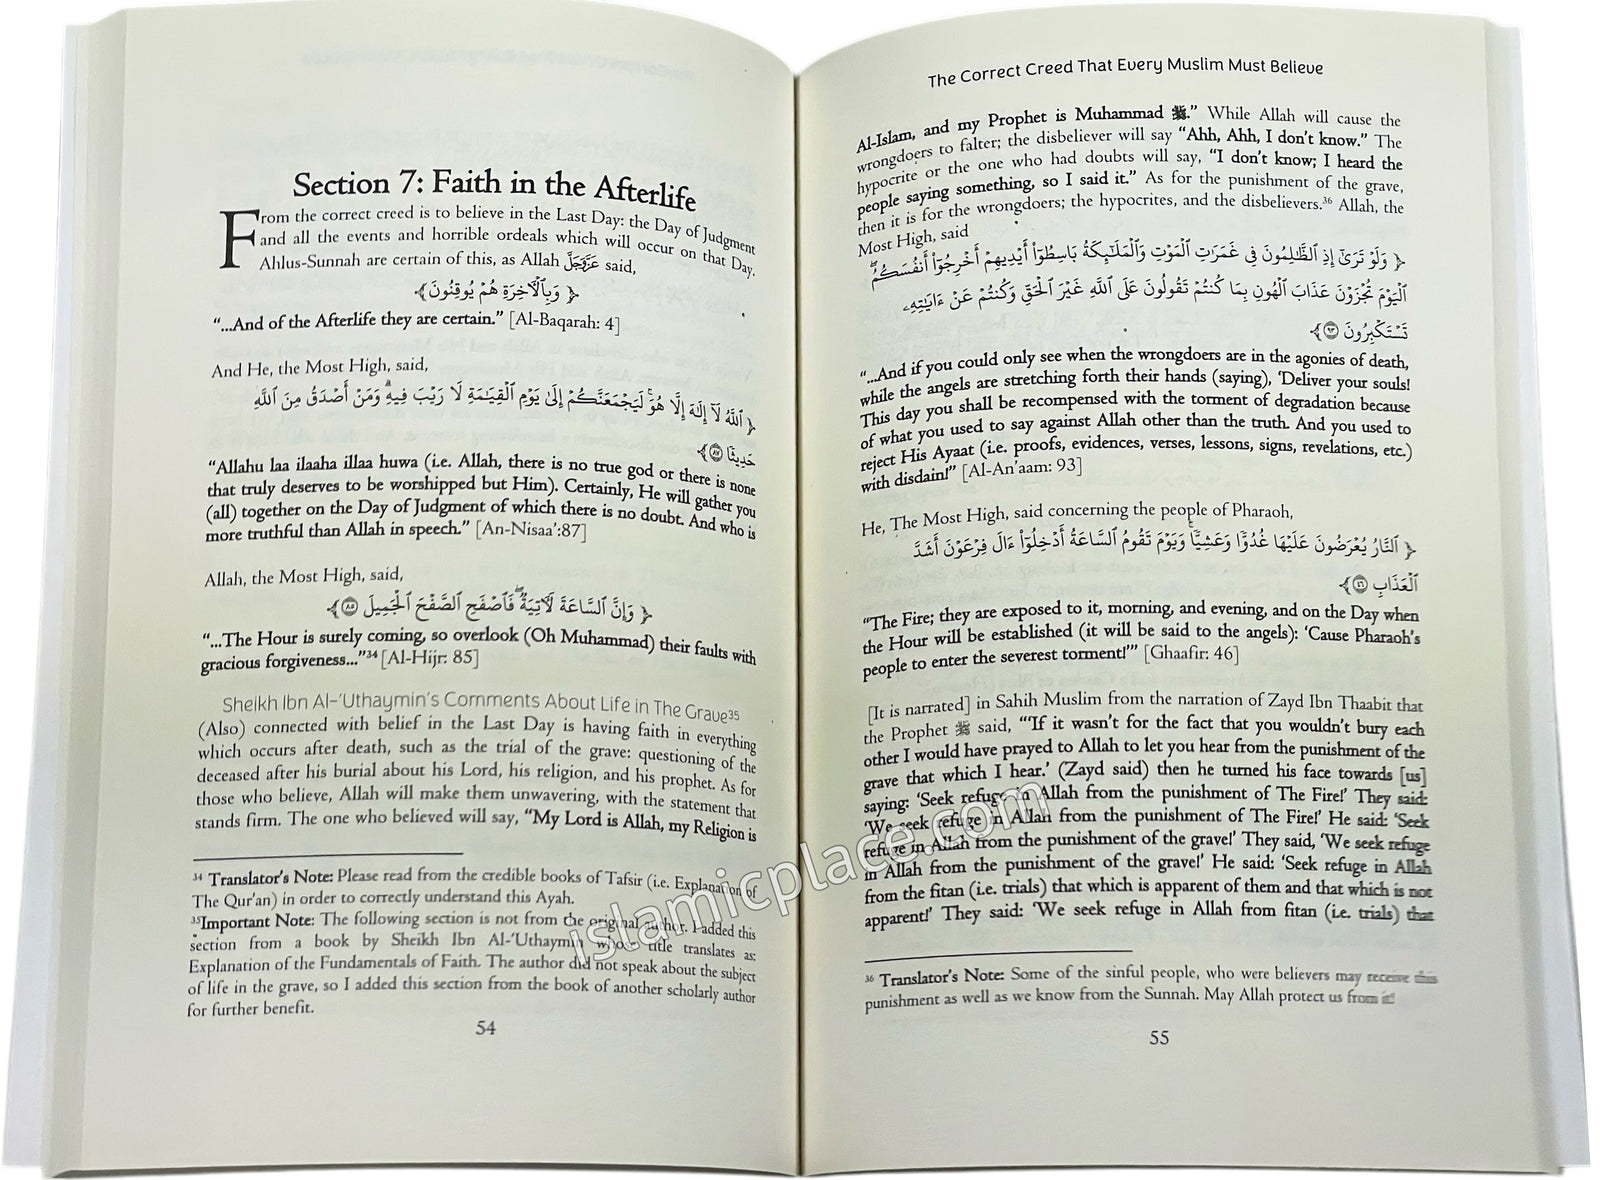 Section 7: Faith in the Afterlife
From the correct creed is to believe in the Last Day: the Day of Judgment
and all the events and horrible ordeals which will occur on that Day.
Ahlus-Sunnah are certain of this, as Allah عَزَّوَجَلَّ said,
﴿ وَبِٱلْأٓخِرَةِ هُمْ يُوقِنُونَ﴾
“...And of the Afterlife they are certain.” [Al-Baqarah: 4]
And He, the Most High, said,
﴿ ٱللَّهُ لَآ إِلَٰهَ إِلَّا هُوَۚ لَيَجْمَعَنَّكُمْ إِلَىٰ يَوْمِ ٱلْقِيَٰمَةِ لَا رَيْبَ فِيهِۗ وَمَنْ أَصْدَقُ مِنَ ٱللَّهِ
حَدِيثًا ٨٧ ﴾
“Allahu laa ilaaha illaa huwa (i.e. Allah, there is no true god or there is none
that truly deserves to be worshipped but Him). Certainly, He will gather you
(all) together on the Day of Judgment of which there is no doubt. And who is
more truthful than Allah in speech.” [An-Nisaa’:87]
Allah, the Most High, said,
﴿ وَإِنَّ ٱلسَّاعَةَ لَأٓتِيَةٌۖ فَٱصْفَحِ ٱلصَّفْحَ ٱلْجَمِيلَ ٨٥ ﴾
“...The Hour is surely coming, so overlook (Oh Muhammad) their faults with
gracious forgiveness...”34 [Al-Hijr: 85]
Sheikh Ibn Al-‘Uthaymin’s Comments About Life in The Grave35
(Also) connected with belief in the Last Day is having faith in everything
which occurs after death, such as the trial of the grave: questioning of the
deceased after his burial about his Lord, his religion, and his prophet. As for
those who believe, Allah will make them unwavering, with the statement that
stands firm. The one who believed will say, “My Lord is Allah, my Religion is
34 Translator’s Note: Please read from the credible books of Tafsir (i.e. Explanation of
The Qur’an) in order to correctly understand this Ayah.
35Important Note: The following section is not from the original author. I added this
section from a book by Sheikh Ibn Al-‘Uthaymin whose title translates as:
Explanation of the Fundamentals of Faith. The author did not speak about the subject
of life in the grave, so I added this section from the book of another scholarly author
for further benefit.
54
The Correct Creed That Every Muslim Must Believe
Al-Islam, and my Prophet is Muhammad ﷺ.” While Allah will cause the
wrongdoers to falter; the disbeliever will say “Ahh, Ahh, I don’t know.” The
hypocrite or the one who had doubts will say, “I don’t know; I heard the
people saying something, so I said it.” As for the punishment of the grave,
then it is for the wrongdoers; the hypocrites, and the disbelievers.36 Allah, the
Most High, said
﴿ وَلَوْ تَرَىٰٓ إِذِ ٱلظَّٰلِمُونَ فِى غَمَرَٰتِ ٱلْمَوْتِ وَٱلْمَلَٰٓئِكَةُ بَاسِطُوٓا۟ أَيْدِيهِمْ أَخْرِجُوٓا۟ أَنفُسَكُمُۖ
ٱلْيَوْمَ تُجْزَوْنَ عَذَابَ ٱلْهُونِ بِمَا كُنتُمْ تَقُولُونَ عَلَى ٱللَّهِ غَيْرَ ٱلْحَقِّ وَكُنتُمْ عَنْ ءَايَٰتِهِۦ
تَسْتَكْبِرُونَ ٩٣ ﴾
“...And if you could only see when the wrongdoers are in the agonies of death,
while the angels are stretching forth their hands (saying), ‘Deliver your souls!
This day you shall be recompensed with the torment of degradation because
of what you used to say against Allah other than the truth. And you used to
reject His Ayaat (i.e. proofs, evidences, verses, lessons, signs, revelations, etc.)
with disdain!” [Al-An’aam: 93]
He, The Most High, said concerning the people of Pharaoh,
﴿ ٱلنَّارُ يُعْرَضُونَ عَلَيْهَا غُدُوًّا وَعَشِيًّاۖ وَيَوْمَ تَقُومُ ٱلسَّاعَةُ أَدْخِلُوٓا۟ ءَالَ فِرْعَوْنَ أَشَدَّ
ٱلْعَذَابِ ٤٦ ﴾
“The Fire; they are exposed to it, morning, and evening, and on the Day when
the Hour will be established (it will be said to the angels): ‘Cause Pharaoh’s
people to enter the severest torment!’” [Ghaafir: 46]
[It is narrated] in Sahih Muslim from the narration of Zayd Ibn Thaabit that
the Prophet ﷺ said, “‘If it wasn’t for the fact that you wouldn’t bury each
other I would have prayed to Allah to let you hear from the punishment of the
grave that which I hear.’ (Zayd said) then he turned his face towards [us]
saying: ‘Seek refuge in Allah from the punishment of The Fire!’ They said:
‘We seek refuge in Allah from the punishment of The Fire!’ He said: ‘Seek
refuge in Allah from the punishment of the grave!’ They said, ‘We seek refuge
in Allah from the punishment of the grave!’ He said: ‘Seek refuge in Allah
from the fitan (i.e. trials) that which is apparent of them and that which is not
apparent!’ They said: ‘We seek refuge in Allah from fitan (i.e. trials) that
36 Translator’s Note: Some of the sinful people, who were believers may receive this
punishment as well as we know from the Sunnah. May Allah protect us from it!
55
islamicplace.com